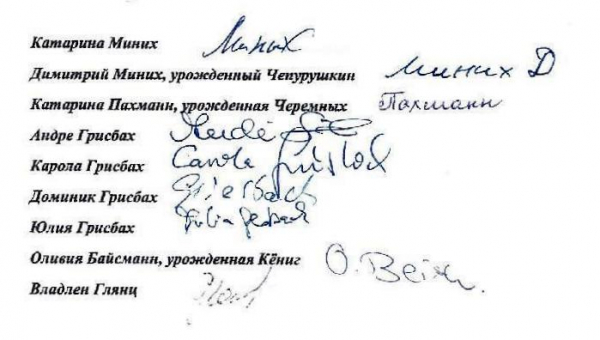 Катарина Миних Миних
Димитрий Миних, урожденный Чепурушкин Миних Д
Катарина Пахманн, урожденная Черемных Пахманн
Андре Грисбах
Карола Грисбах Carola
Доминик Грисбах Griesbach
Юлия Грисбах
Оливия Байсманн, урожденная Кёниг O.
Владлен Глянц